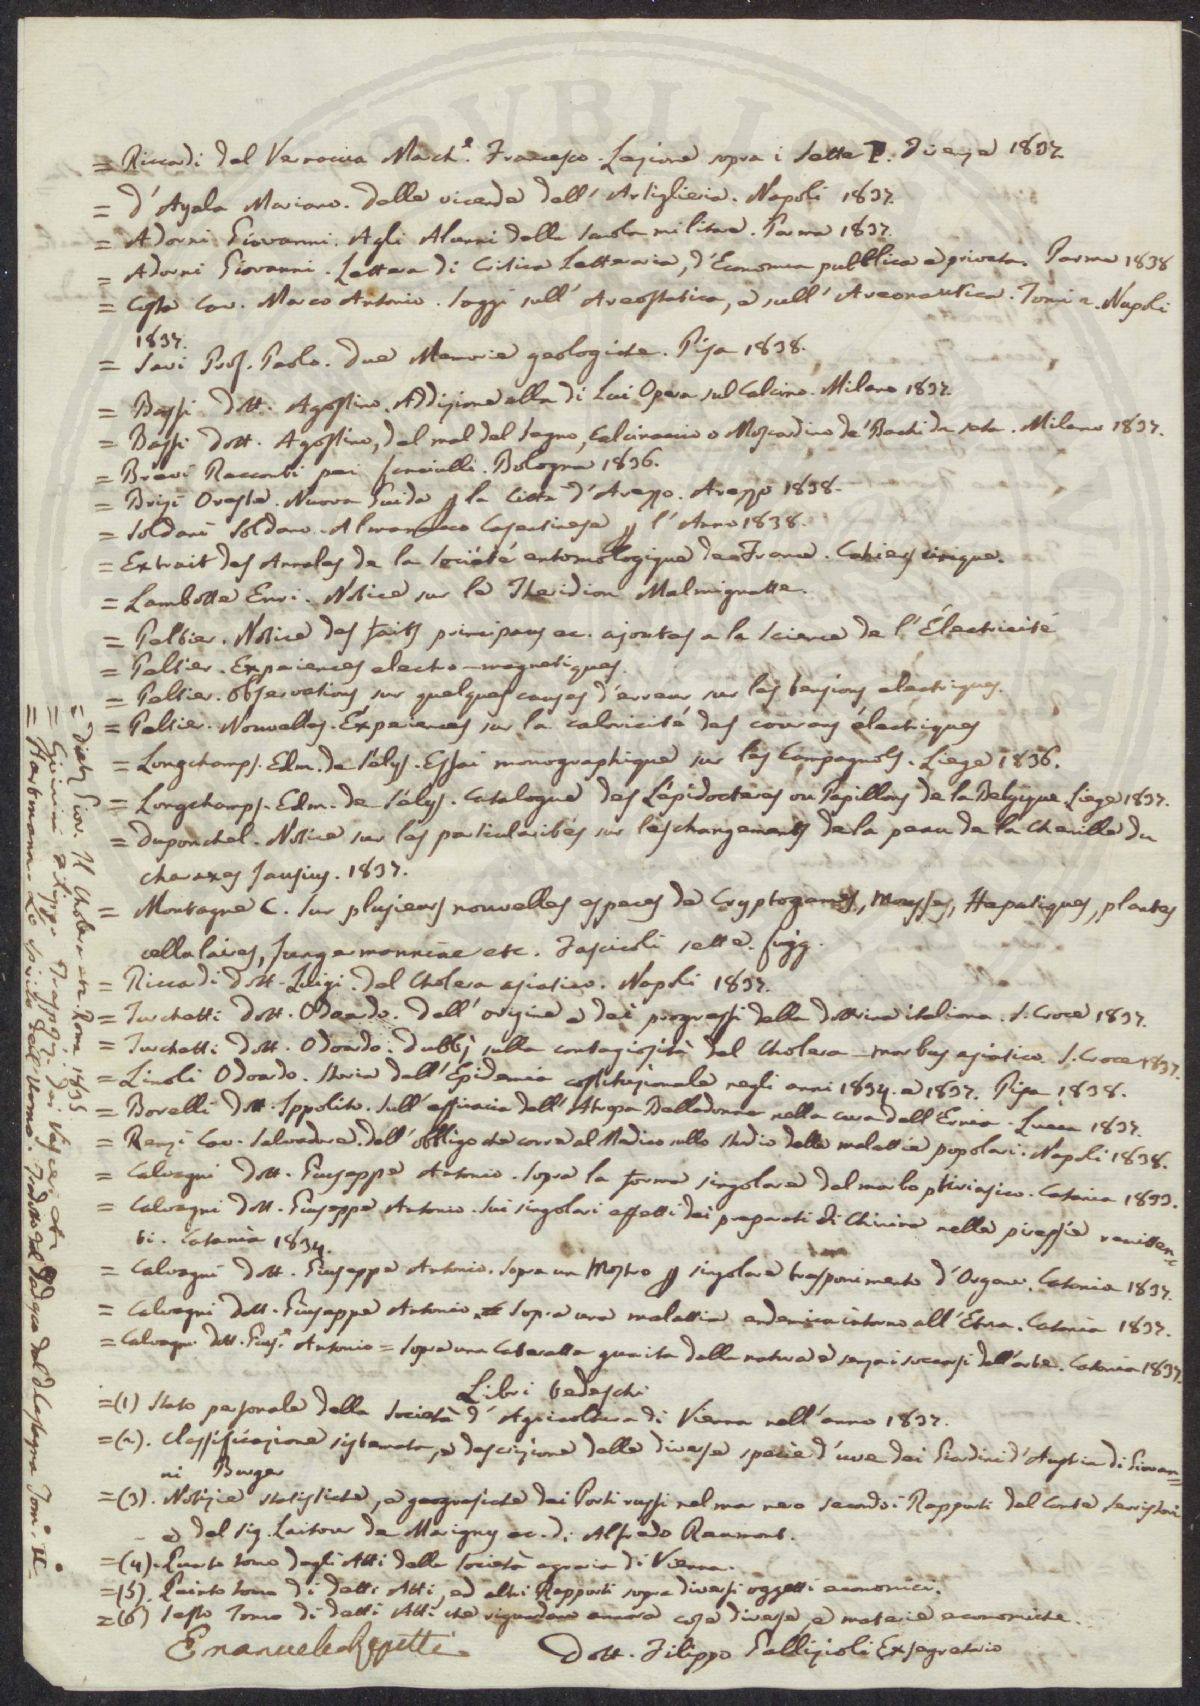 = Riccardi del Vernaccia March.e Francesco. Lezione sopra i Sette P. Firenze 1837.
= d'Ayala Mariano. Delle vicende dell'Artiglieria. Napoli 1837.
= Adorni Giovanni. Agli Alunni della Scuola militare. Parma 1837.
= Adorni Giovanni. Lettera di Critica Letteraria, d'Economia pubblica e privata. Parma 1838
= Costa Cav. Marco Antonio. Saggi sull'Areostatica, e sull'Areonautica. Tomi 2. Napoli
1837.
= Savi Prof. Paolo. Due Memorie geologiche. Pisa 1838.
= Bassi Dott. Agostino. Addizione alla di Lui Opera sul Calcino. Milano 1837.
= Bassi Dott. Agostino, del mal del segno, Calcinaccio o Moscardino de' Bachi da seta. Milano 1837.
= Brevi Racconti pei fanciulli. Bologna 1836.
= Brizi Oreste. Nuova Guida p la Città d'Arezzo. Arezzo 1838.
= Soldani Soldano. Almanacco Casentinese p l'Anno 1838.
= Extrait des Annales de la Société entomologique de France. Cahiers cinque.
= Lambotte Enri. Notice sur le Theridion Malmignatte.
= Peltier. Notice des faits principaux ec. ajoutes a la Science de l'Électricité
= Peltier. Expériences electro-magnetiques
= Peltier. Observations sur quelques causes d'erreur sur les tensions electriques.
= Peltier. Nouvelles Expériences sur la caloricité des courans électriques
= Longchamps. Edm. de Sélys. Essai monographique sur les Campagnols. Liege 1836.
= Longchamps. Edm. de Sélys. Catalogue des Lépidoctères ou Papillons de la Belgique Liege 1837.
= Duponchel. Notice sur les particularités sur les changements de la peau de la Chenille du
charaxes Jausius. 1837.
= Montagne C. Sur plusieurs nouvelles especes de Cryptogames, Mousses, Hepatiques, plantes
cellulaires, Jungermannine etc. Fascicoli sette. fugg.
= Riccardi dott. Luigi. del Cholera asiatico. Napoli 1837.
= Turchetti Dott. Odoardo. Dell'origine e dei progressi della dottrina italiana. S. Croce 1837.
= Turchetti Dott. Odoardo. Dubbj sulla contagiosità del Cholera-morbus asiatico. S. Croce 1837.
= Linoli Odoardo. Storia dell'Epidemia costituzionale negli anni 1834 e 1837. Pisa 1838.
= Borelli Dott. Ippolito. Sull'efficacia dell'Atropa Belladonna nella cura dell'Ernia. Lucca 1837.
= Renzi Cav. Salvadore. Dell'obbligo che corre al Medico sullo studio delle malattie popolari. Napoli 1838.
= Calvagni Dott. Giuseppe Antonio. Sopra la forma singolare del morbo ptiriasico. Catania 1833.
= Calvagni Dott. Giuseppe Antonio. Sui singolari effetti dei preparati di Chinina nelle piressie remitten=
ti. Catania 1834.
= Calvagni Dott. Giuseppe Antonio. Sopra un Mostro p singolare trasponimento d'Organi. Catania 1837.
= Calvagni Dott. Giuseppe Antonio. Sopra una malattia endemica intorno all'Etna. Catania 1837.
= Calvagni Dott. Gius.e Antonio = Sopra una Cateratta guarita dalla natura e senza i soccorsi dell'arte. Catania 1837.
Libri tedeschi
= (1) Stato personale della Società d'Agricoltura di Vienna nell'anno 1837.
= (2). Classificazione sistemata, e descrizione delle diverse specie d'uve dei Giardini d'Austria di Giovan=
ni Burger
= (3). Notizie statistiche, e geografiche dei Porti russi nel mar nero secondo i Rapporti del Conte Serristori
e del sig. Laitour de Marigny ec. di Alfredo Reumont.
= (4). Quarto tomo degli Atti della Società agraria di Vienna.
= (5). Quinto tomo di detti Atti, ed altri Rapporti sopra diversi oggetti economici.
= (6) Sesto Tomo di detti Atti che riguardano ancora cose diverse, e materie economiche.
Emanuele Repetti
Dott. Filippo Gallizioli Exsegretario
= Dietz Giov. Il Cholera Roma 1835
= Filippo Trattato dei Vescicanti
= Hartmann. Lo Spirito dell'Uomo. Tradotto dal Tedesco dal D. Tomi. II.